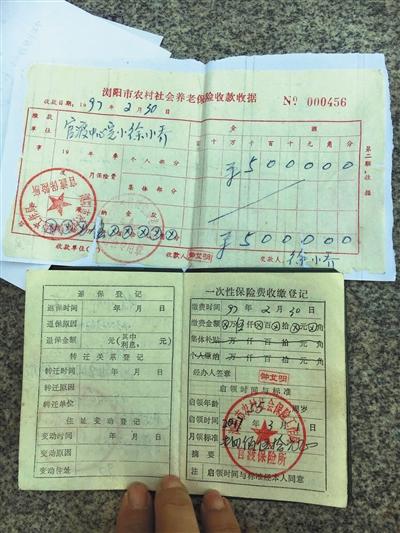 浏阳市农村社会养老保险收款收据
收款日期：1997年2月30日 № 000456
缴款单位 官渡中心完小徐小乔 金额
百十万千百十元角分
19 年 季 个人部分 ¥500000
月保险费 集体部分
¥500000
收款单位 收款人 交款人 徐小乔
第二联：收据
官渡保险所
退保登记
退保时间 年 月 日
退保原因
退保金额 元（其中利息： 元）
转迁关系登记
转迁时间 年 月 日
转迁原因
转迁单位
住址变动登记
变动时间 年 月 日
变动原因
变动住址
一次性保险费收缴登记
缴费时间 97年2月30日
缴费金额 万伍仟 百 拾 元 角
集体补贴 万 仟 百 拾 元 角
个人缴纳 万 仟 百 拾 元 角
经办人签章
启领时间与标准
启领年龄 周岁
启领时间
月领标准
摘要
注 启领时间与标准经本人同意
官渡保险所